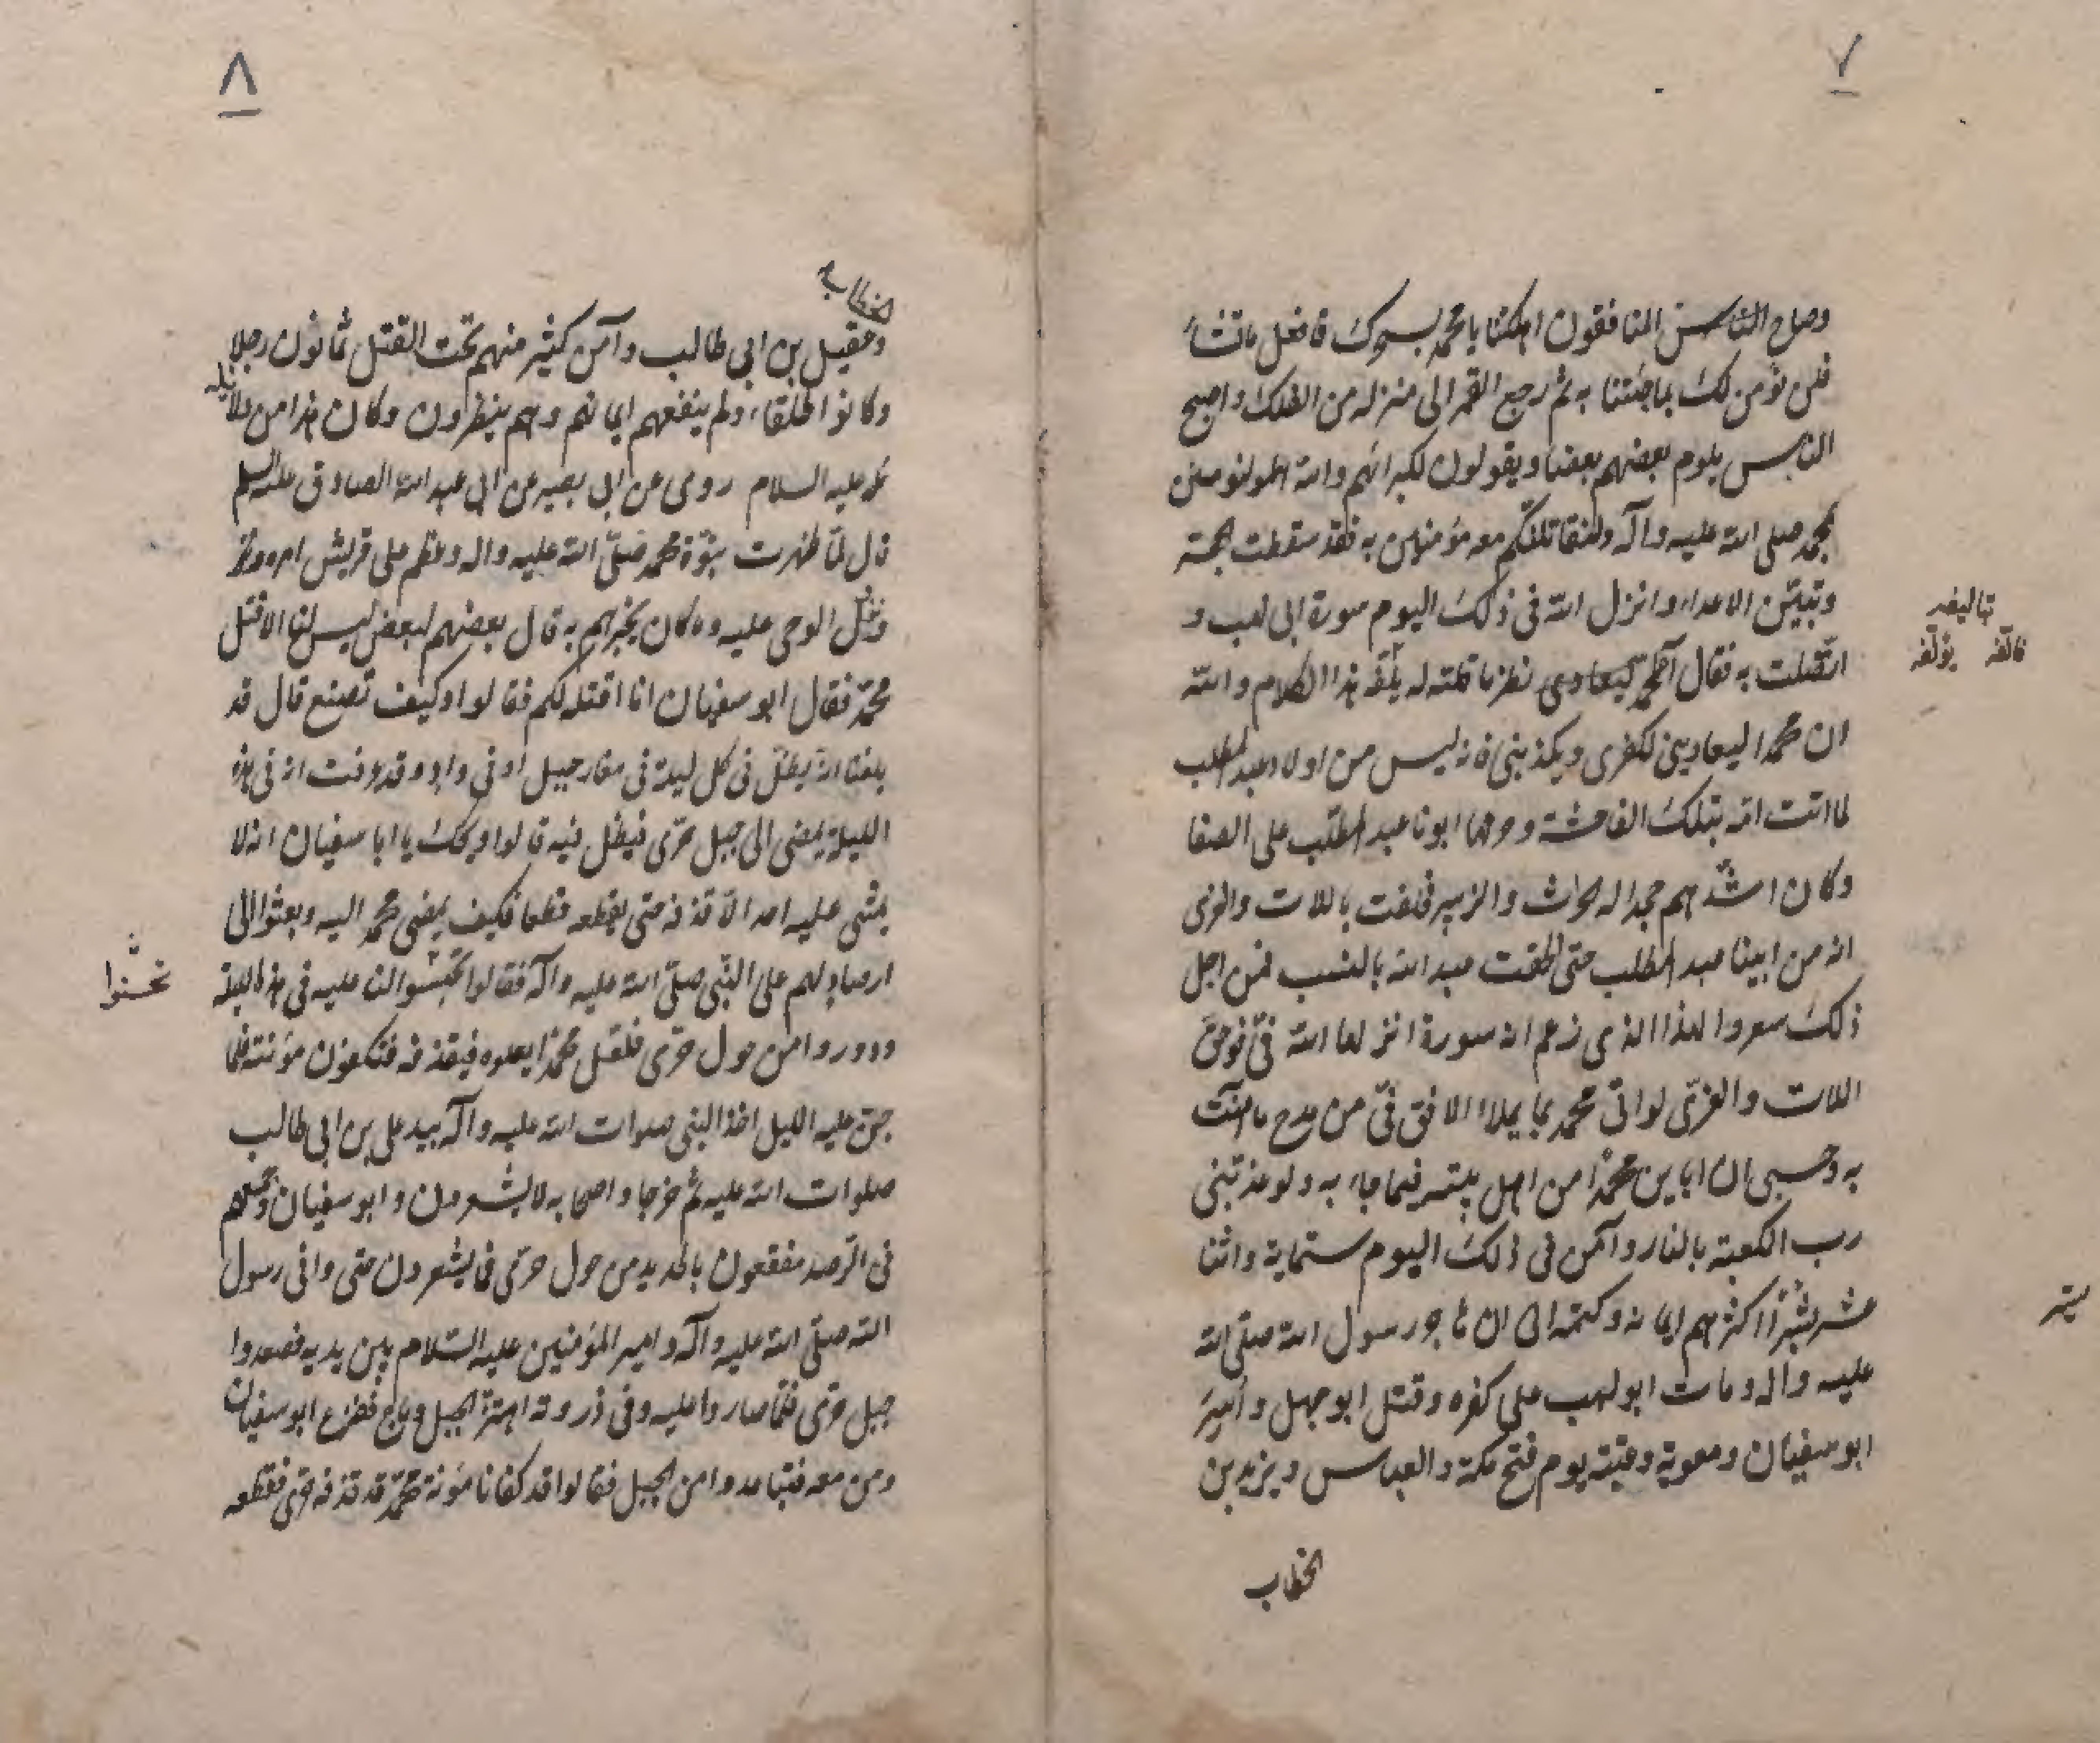 ٧
وصاح الناس المنافقون اهلكتنا يا محمد بسحرك فافعل ما تشاء
فلن نؤمن لك بما جئتنا به ثم رجع القمر الى منزله من الفلك واصبح
الناس يلوم بعضهم بعضا ويقولون لكبرائهم والله لنؤمنن
بمحمد صلى الله عليه وآله ولنقاتلنكم معه مؤمنين به فقد سقطت الحجة
وتبين الاعداء وانزل الله في ذلك اليوم سورة ابي لهب و
اتصلت به فقال محمد ليعادي نظر ما قلته له يلفه هذا الكلام والله
ان محمدا ليعاديني لكفري ويكذبني فانه ليس من اولاد عبد المطلب
لما اتت امه بتلك الفاحشة وحرمها ابونا عبد المطلب على الصفا
وكان اشدهم جحدا له الحارث والزبير فلفت باللات والعزى
انه من ابينا عبد المطلب حتى الحقت عبد الله بالنسب فمن اجل
ذلك سعروا لهذا الذي زعم انه سورة انزلها الله في فوحق
اللات والعزى لو اتى محمد بما يملاء الافق في من مدح ما امنت
به وحسبي ان اباين محمدا من اهل بيته فيما جاء به ولو عذبني
رب الكعبة بالنار وآمن في ذلك اليوم ستماية واثنا
عشر اكثرهم ايمانه وكتمه الى ان هاجر رسول الله صلى الله
عليه واله ومات ابو لهب على كفره وقتل ابو جهل وأسر
ابو سفيان ومعوية وعتبة يوم فتح مكة والعباس ويزيد بن
الخطاب
تاليفه
فالفه يؤلفه
ستر
٨
الخطاب
وعقيل بن ابي طالب وآمن كثير منهم تحت القتل ثمانون رجلا
وكانوا طلقاء ولم ينفعهم ايمانهم وهم ينظرون وكان هذا من دلايله
عليه السلام روى عن ابي بصير عن ابي عبد الله الصادق عليه السلم
قال لما ظهرت نبوة محمد صلى الله عليه واله وعظم على قريش امره
ونزل الوحي عليه وما كان يخبرهم به قال بعضهم لبعض ليس لنا الا قتل
محمد فقال ابو سفيان انا اقتله لكم فقالوا وكيف تصنع قال قد
بلغنا انه يظل في كل ليلة في مغار جبل او في واد وقد عرفت انه في هذه
الليلة يمضي الى جبل حرى فيظل فيه قالوا ويحك يا ابا سفيان انه لا
يمشي عليه احد الا قذفه حتى يقطعه قطعا فكيف يمضي محمد اليه وبعثوا الى
ارصاد لهم على النبي صلى الله عليه وآله فقالوا تجسسوا لنا عليه في هذه الليلة
ودوروا من حول حرى فلعل محمدا يعلوه فيقذفه فتكفون مؤنته فلما
جن عليه الليل اخذ النبي صلوات الله عليه وآله بيد علي بن ابي طالب
صلوات الله عليه ثم خرجا واصحابه لا يشعرون وابو سفيان وجمعهم
في الرصد مقنعون بالحديد من حول حرى فما يشعرون حتى وافى رسول
الله صلى الله عليه وآله وامير المؤمنين عليه السلام بين يديه فصعدوا
جبل حرى فلما صاروا عليه وفي ذروته اهتز الجبل وماج ففزع ابو سفيان
ومن معه فتباعدوا من الجبل فقالوا قد كفانا مؤنة محمد قد قذفه حرى فقطعه
تحسسوا